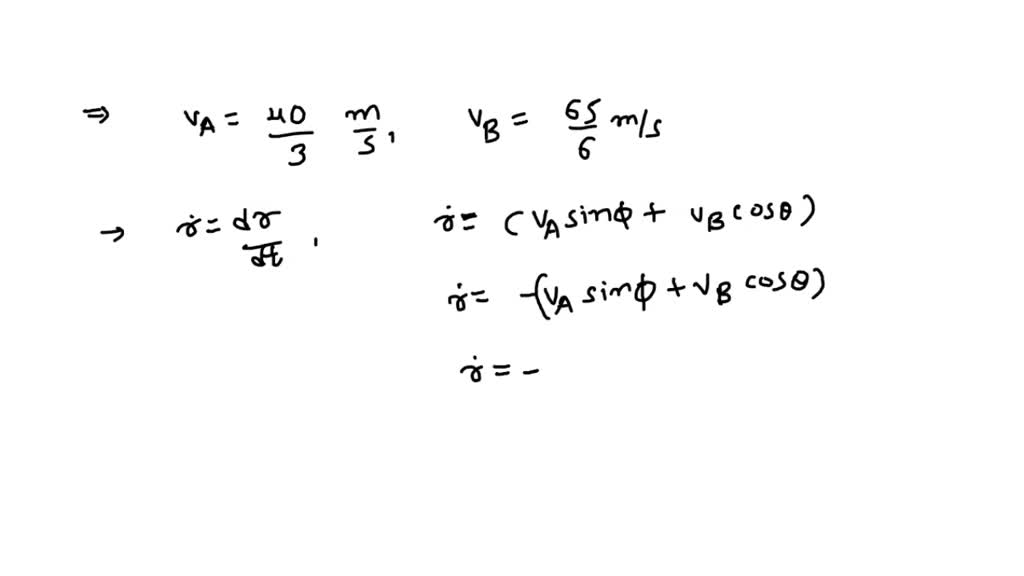 ⇒ vA = 40/3 m/s, vB = 65/6 m/s
→ ṙ = dr/dt, ṙ = (vA sinϕ + vB cosθ)
ṙ = -(vA sinϕ + vB cosθ)
ṙ = -